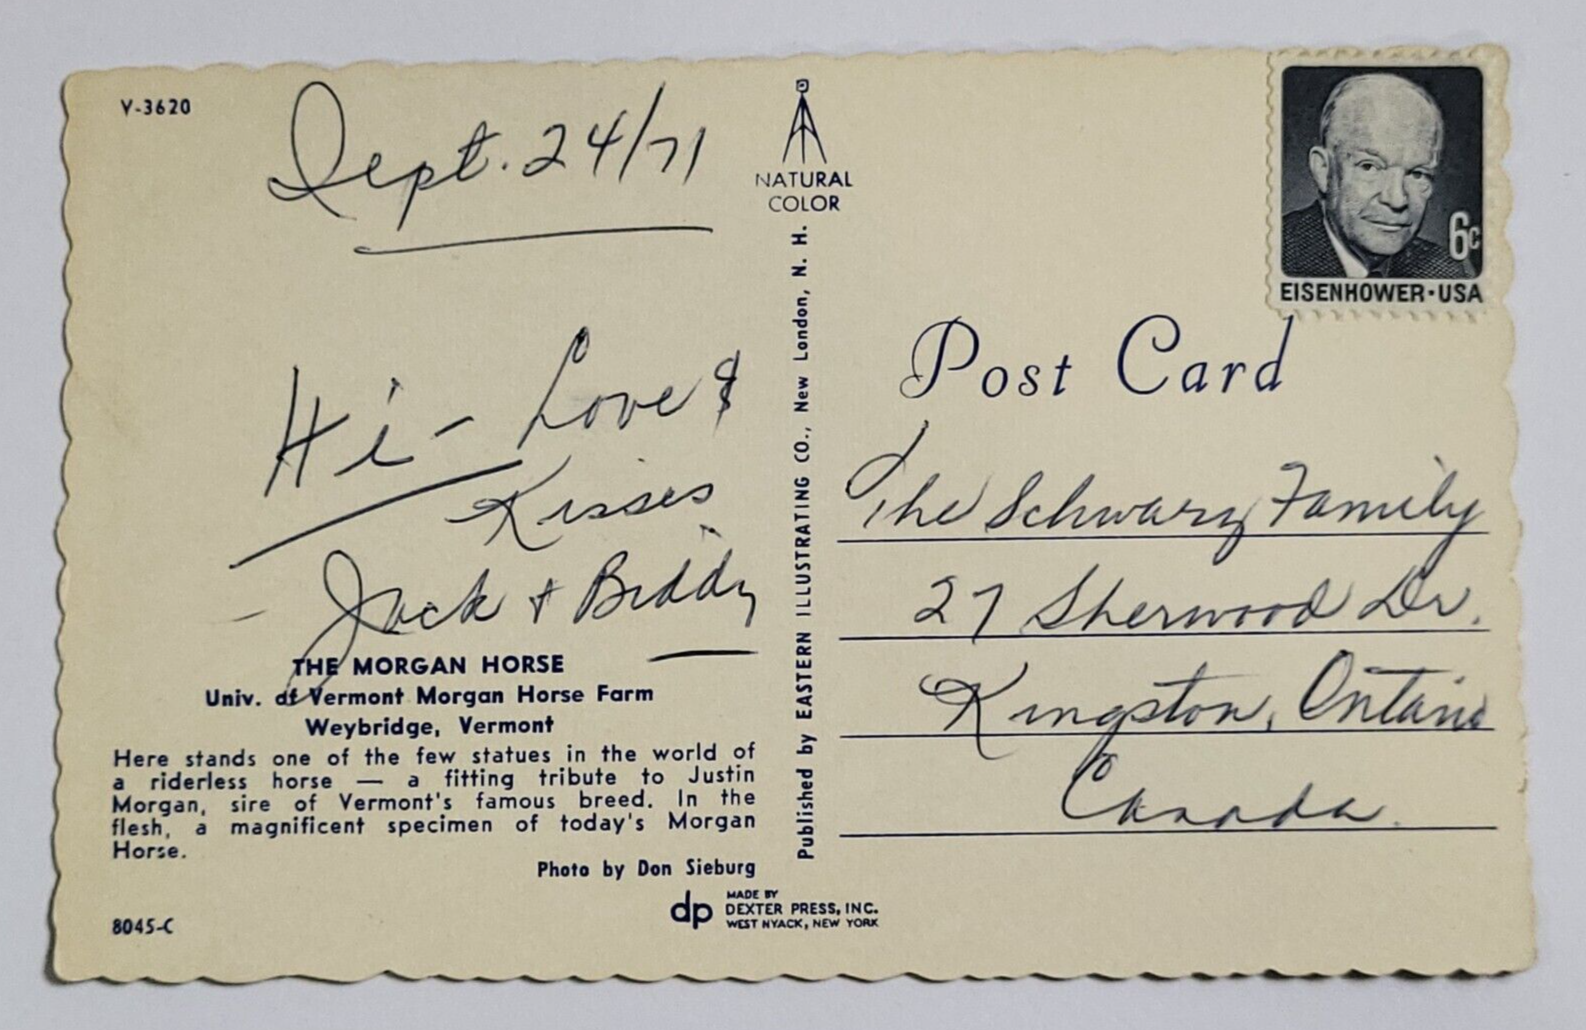 V-3620
Sept. 24/71
Hi - Love &
Kisses
Jack + Biddy
THE MORGAN HORSE
Univ. of Vermont Morgan Horse Farm
Weybridge, Vermont
Here stands one of the few statues in the world of
a riderless horse — a fitting tribute to Justin
Morgan, sire of Vermont's famous breed. In the
flesh, a magnificent specimen of today's Morgan
Horse.
Photo by Don Sieburg
8045-C
dp
MADE BY
DEXTER PRESS, INC.
WEST NYACK, NEW YORK
NATURAL
COLOR
Published by EASTERN ILLUSTRATING CO., New London, N. H.
6c
EISENHOWER · USA
Post Card
The Schwarz Family
27 Sherwood Dr.
Kingston, Ontario
Canada.